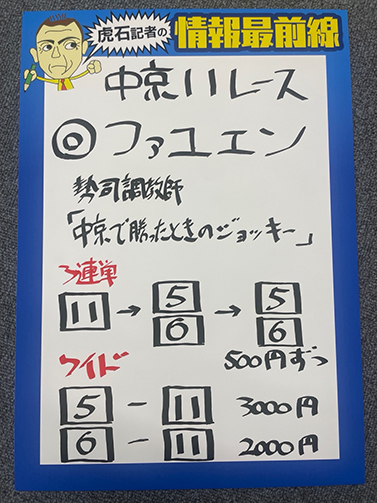 虎石記者の
情報最前線
中京11レース
◎ファユエン
勢司調教師
「中京で勝ったときのジョッキー」
3連単
11→5 6→5 6
500円ずつ
ワイド
5－11 3000円
6－11 2000円